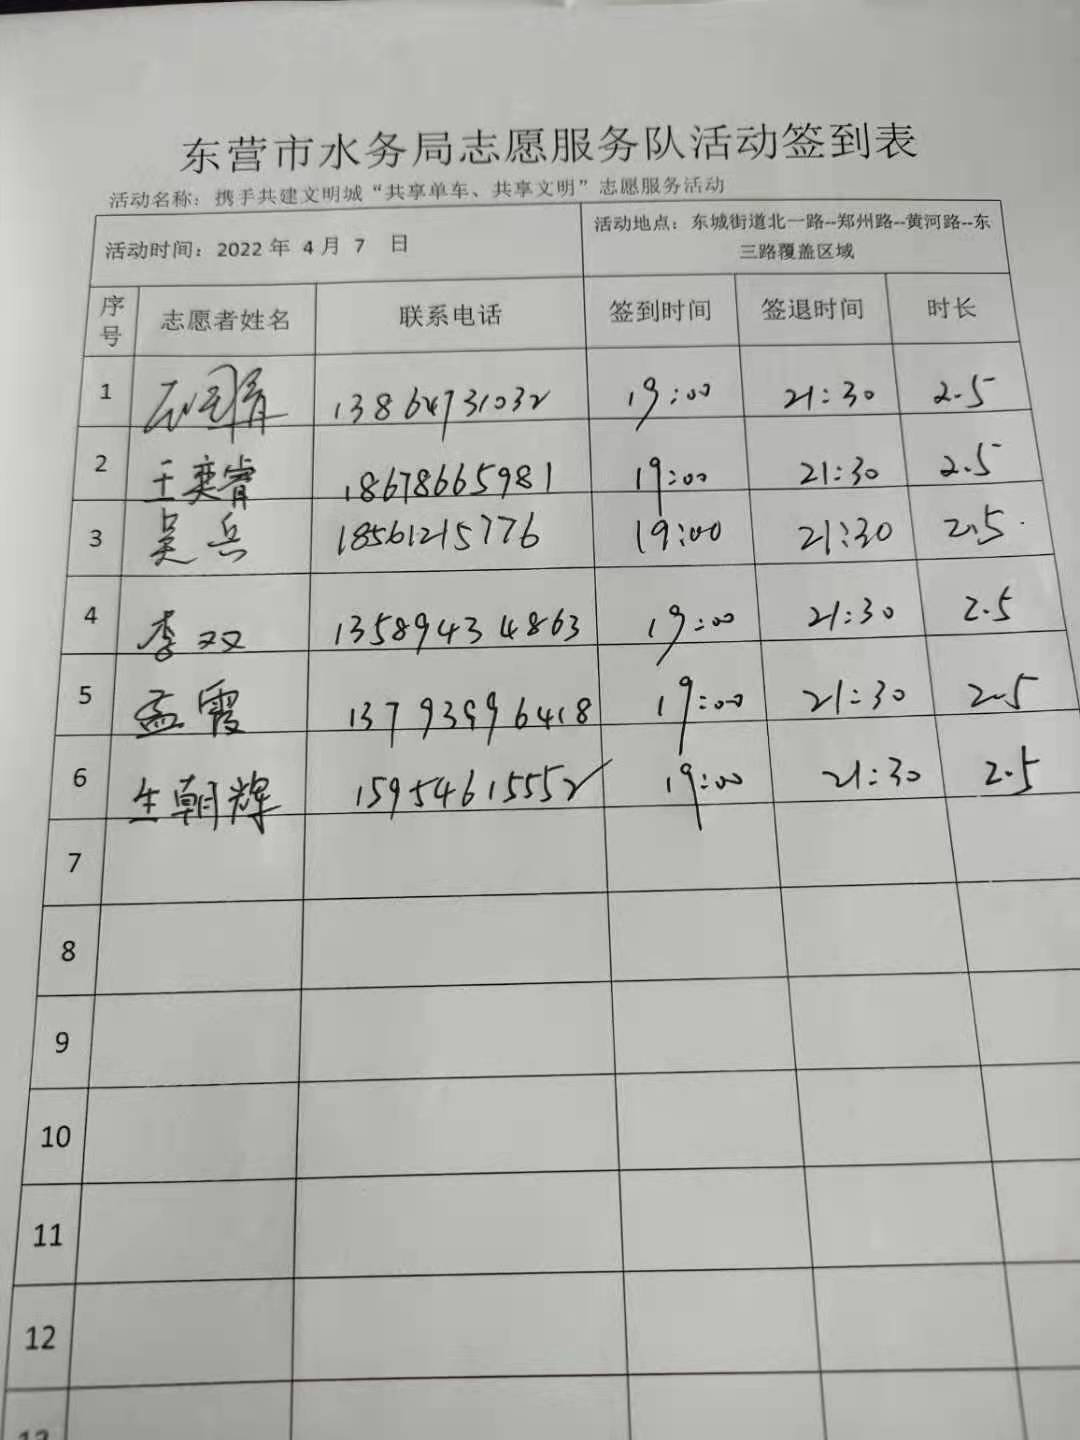 东营市水务局志愿服务队活动签到表
活动名称：携手共建文明城“共享单车、共享文明”志愿服务活动
活动时间：2022 年 4 月 7 日
活动地点：东城街道北一路--郑州路--黄河路--东
三路覆盖区域
序号 志愿者姓名 联系电话 签到时间 签退时间 时长
1 13864731032 19:00 21:30 2.5
2 王奕睿 18678665981 19:00 21:30 2.5
3 吴兵 18561215776 19:00 21:30 2.5
4 李双 13589434863 19:00 21:30 2.5
5 孟霞 13793996418 19:00 21:30 2.5
6 生朝辉 15954615552 19:00 21:30 2.5
7
8
9
10
11
12
13